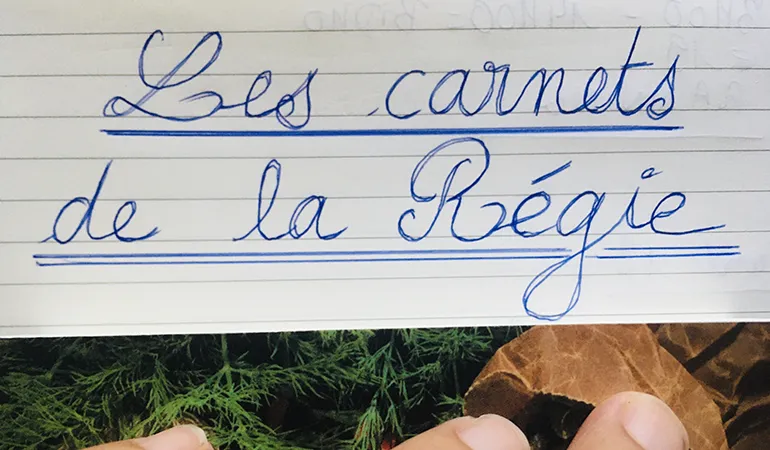 Les carnets
de la Régie